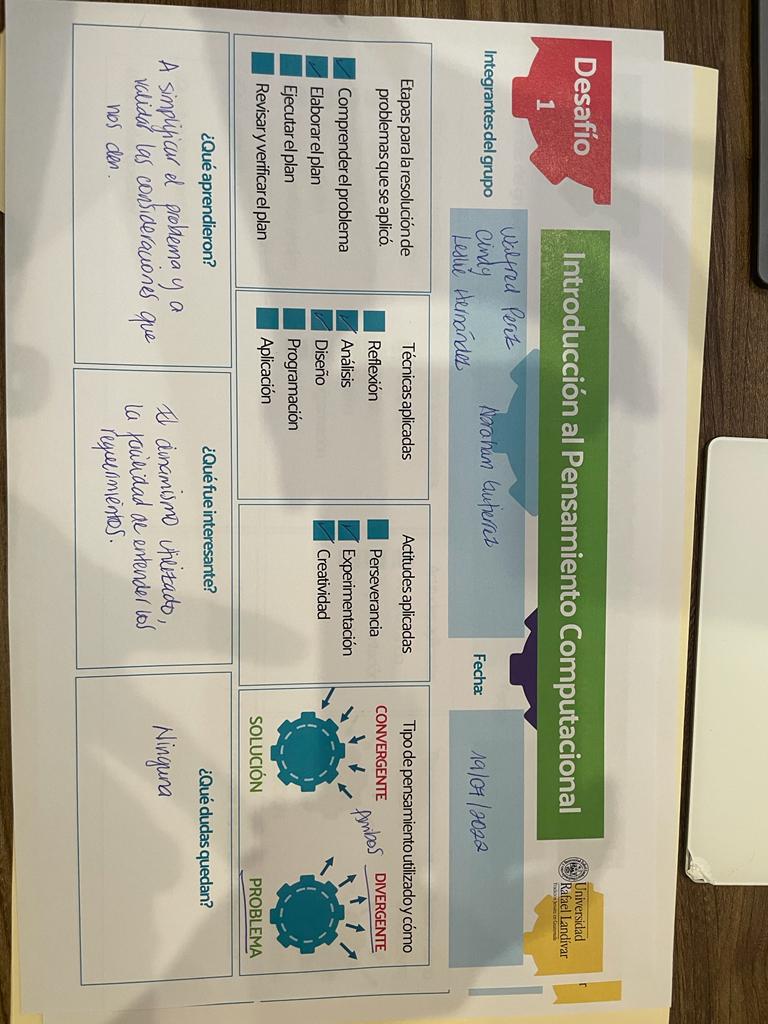 Desafío
1
Introducción al Pensamiento Computacional
Universidad
Rafael Landívar
Tradición Jesuita en Guatemala
Integrantes del grupo
Wilfred Perez
Cindy
Leslie Hernández
Abraham Gutierrez
Fecha:
19/07/2022
Etapas para la resolución de
problemas que se aplicó.
Comprender el problema
Elaborar el plan
Ejecutar el plan
Revisar y verificar el plan
Técnicas aplicadas
Reflexión
Análisis
Diseño
Programación
Aplicación
Actitudes aplicadas
Perseverancia
Experimentación
Creatividad
Tipo de pensamiento utilizado y cómo
CONVERGENTE
Ambos
DIVERGENTE
SOLUCIÓN
PROBLEMA
¿Qué aprendieron?
A simplificar el problema y a
validar las consideraciones que
nos den.
¿Qué fue interesante?
El dinamismo utilizado,
la facilidad de entender los
requerimientos.
¿Qué dudas quedan?
Ninguna